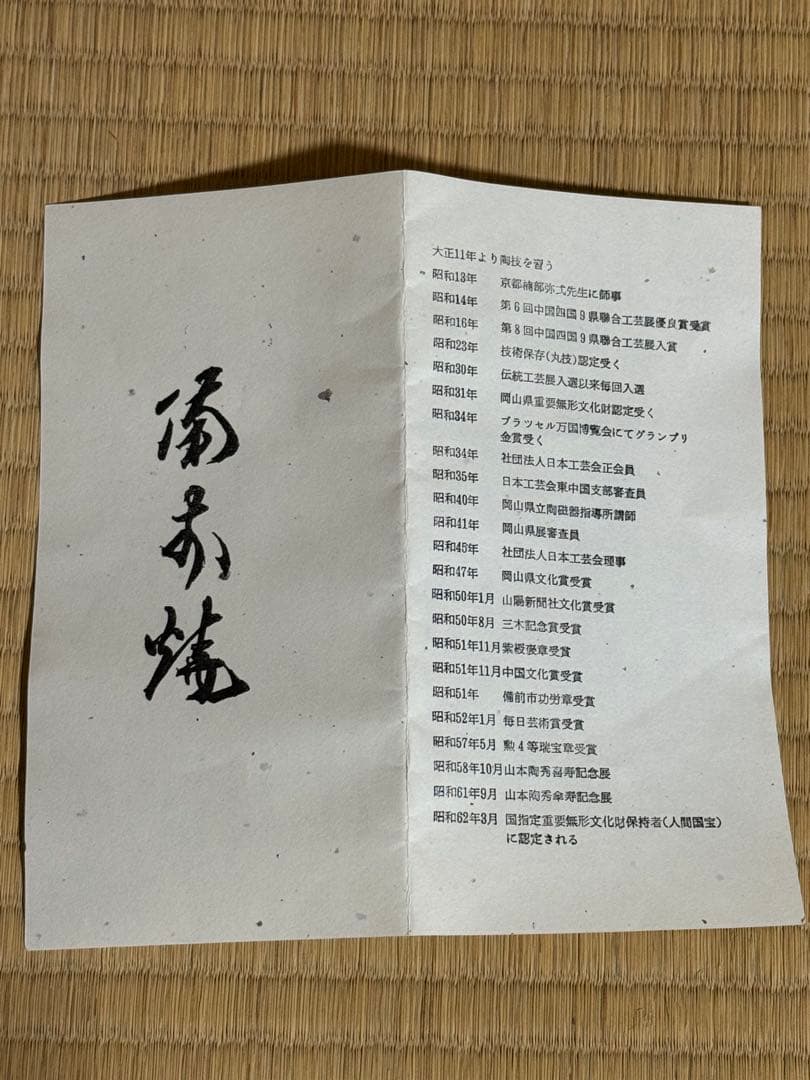 備前焼
大正11年より陶技を習う
昭和13年 京都楠部弥弌先生に師事
昭和14年 第6回中国四国9県聯合工芸展優良賞受賞
昭和16年 第8回中国四国9県聯合工芸展入賞
昭和23年 技術保存(丸技)認定受く
昭和30年 伝統工芸展入選以来毎回入選
昭和31年 岡山県重要無形文化財認定受く
昭和34年 ブラッセル万国博覧会にてグランプリ
金賞受く
昭和34年 社団法人日本工芸会正会員
昭和35年 日本工芸会東中国支部審査員
昭和40年 岡山県立陶磁器指導所講師
昭和41年 岡山県展審査員
昭和45年 社団法人日本工芸会理事
昭和47年 岡山県文化賞受賞
昭和50年1月 山陽新聞社文化賞受賞
昭和50年8月 三木記念賞受賞
昭和51年11月紫綬褒章受賞
昭和51年11月中国文化賞受賞
昭和51年 備前市功労章受賞
昭和52年1月 毎日芸術賞受賞
昭和57年5月 勲4等瑞宝章受賞
昭和58年10月山本陶秀喜寿記念展
昭和61年9月 山本陶秀傘寿記念展
昭和62年3月 国指定重要無形文化財保持者(人間国宝)
に認定される